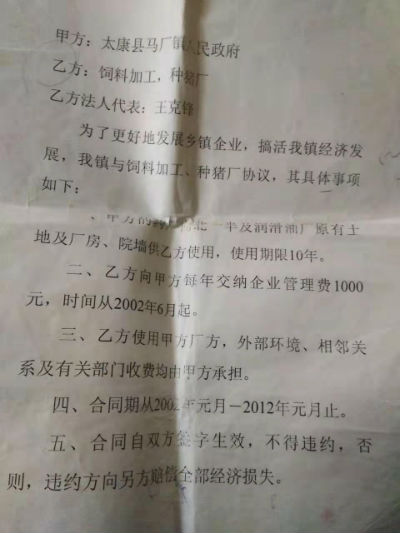 甲方：太康县马厂镇人民政府
乙方：饲料加工，种猪厂
乙方法人代表：王克锋
为了更好地发展乡镇企业，搞活我镇经济发
展，我镇与饲料加工、种猪厂协议，其具体事项
如下：
、甲方的 北一半及润滑油厂原有土
地及厂房、院墙供乙方使用，使用期限10年。
二、乙方向甲方每年交纳企业管理费1000
元，时间从2002年6月起。
三、乙方使用甲方厂方，外部环境、相邻关
系及有关部门收费均由甲方承担。
四、合同期从2002年元月－2012年元月止。
五、合同自双方签字生效，不得违约，否
则，违约方向另方赔偿全部经济损失。